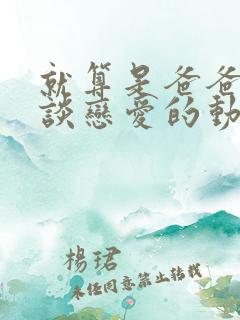 就算是爸爸
談戀愛的動
楊珺
未任同意禁止轉載